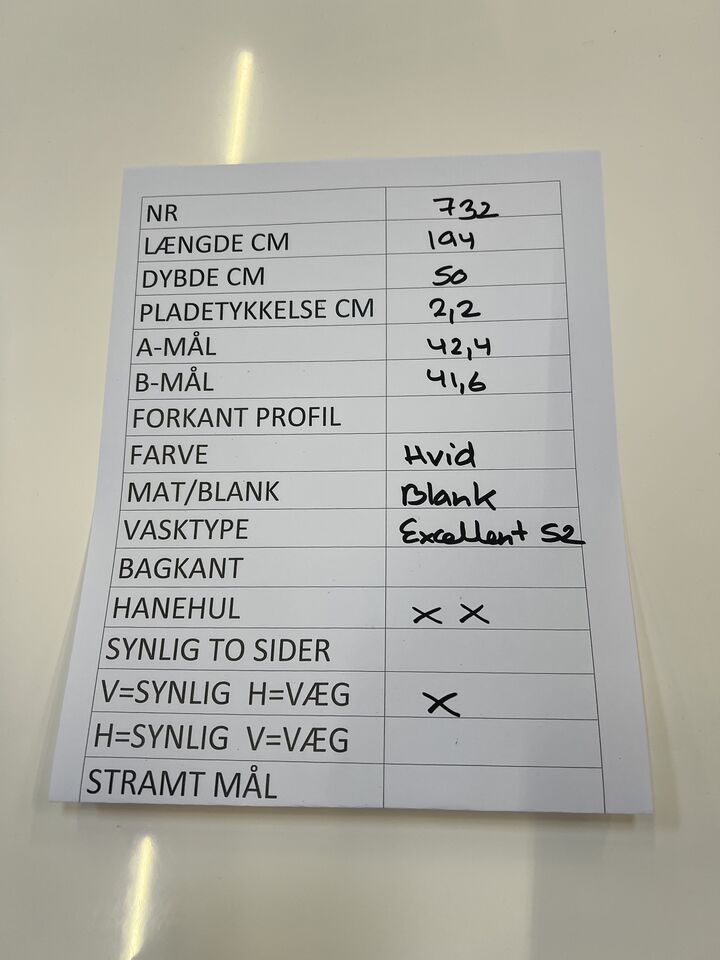 NR 732
LÆNGDE CM 194
DYBDE CM 50
PLADETYKKELSE CM 2,2
A-MÅL 42,4
B-MÅL 41,6
FORKANT PROFIL
FARVE Hvid
MAT/BLANK Blank
VASKTYPE Excellent S2
BAGKANT
HANEHUL X X
SYNLIG TO SIDER
V=SYNLIG H=VÆG X
H=SYNLIG V=VÆG
STRAMT MÅL